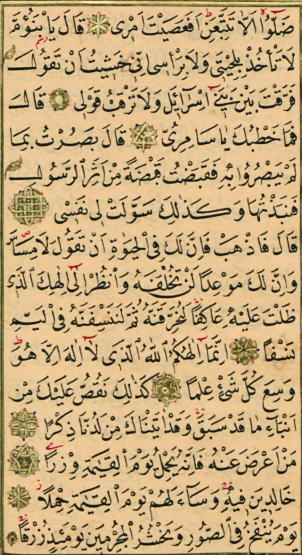 ضَلُّوا اَلَّا تَتَّبِعَنِ اَفَعَصَيْتَ اَمْرِى قَالَ يَابْنَؤُمَّ
لَا تَأْخُذْ بِلِحْيَتِى وَلَا بِرَاْسِى اِنِّى خَشِيتُ اَنْ تَقُولَ
فَرَّقْتَ بَيْنَ بَنِى اِسْرَآئِلَ وَلَمْ تَرْقُبْ قَوْلِى قَالَ
فَمَا خَطْبُكَ يَا سَامِرِىُّ قَالَ بَصُرْتُ بِمَا
لَمْ يَبْصُرُوا بِهِ فَقَبَضْتُ قَبْضَةً مِنْ اَثَرِ الرَّسُولِ
فَنَبَذْتُهَا وَكَذٰلِكَ سَوَّلَتْ لِى نَفْسِى
قَالَ فَاذْهَبْ فَاِنَّ لَكَ فِى الْحَيٰوةِ اَنْ تَقُولَ لَا مِسَاسَ
وَاِنَّ لَكَ مَوْعِدًا لَنْ تُخْلَفَهُ وَانْظُرْ اِلٰى اِلٰهِكَ الَّذِى
ظَلْتَ عَلَيْهِ عَاكِفًا لَنُحَرِّقَنَّهُ ثُمَّ لَنَنْسِفَنَّهُ فِى الْيَمِّ
نَسْفًا اِنَّمَا اِلٰهُكُمُ اللّٰهُ الَّذِى لَا اِلٰهَ اِلَّا هُوَ
وَسِعَ كُلَّ شَىْءٍ عِلْمًا كَذٰلِكَ نَقُصُّ عَلَيْكَ مِنْ
اَنْبَاءِ مَا قَدْ سَبَقَ وَقَدْ اٰتَيْنَاكَ مِنْ لَدُنَّا ذِكْرًا
مَنْ اَعْرَضَ عَنْهُ فَاِنَّهُ يَحْمِلُ يَوْمَ الْقِيٰمَةِ وِزْرًا
خَالِدِينَ فِيهِ وَسَاءَ لَهُمْ يَوْمَ الْقِيٰمَةِ حِمْلًا
يَوْمَ يُنْفَخُ فِى الصُّورِ وَنَحْشُرُ الْمُجْرِمِينَ يَوْمَئِذٍ زُرْقًا